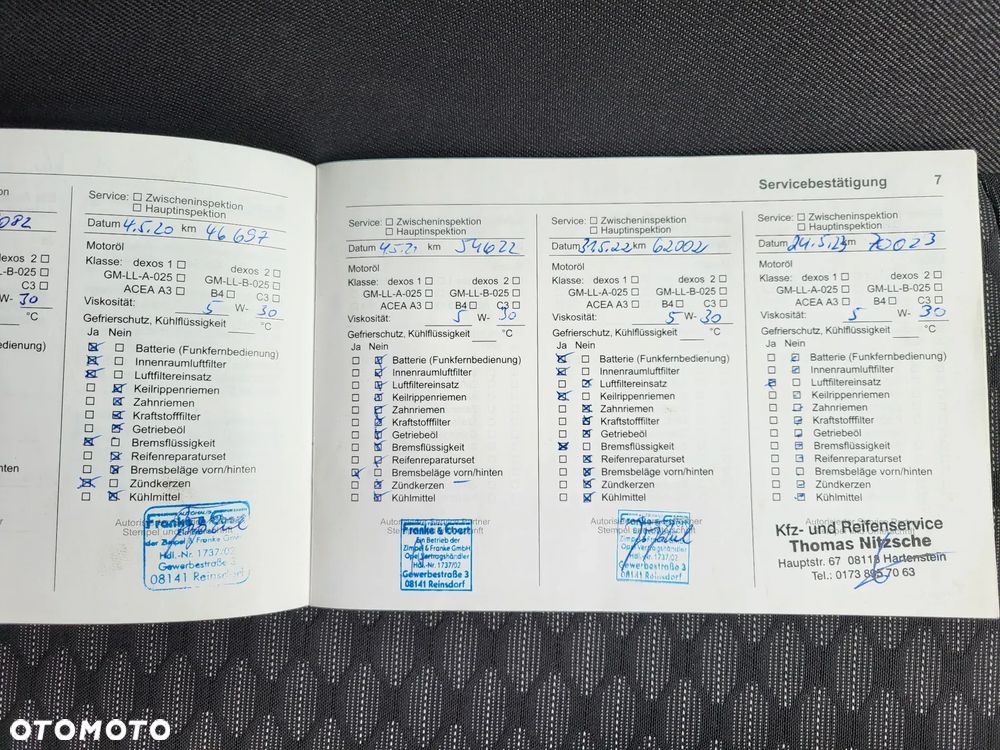 on
082
dexos 2
LL-B-025
C3
W- 30
°C
nbedienung)
nten
Service: Zwischeninspektion
Hauptinspektion
Datum 4.5.20 km 46 697
Motoröl
Klasse: dexos 1 dexos 2
GM-LL-A-025 GM-LL-B-025
ACEA A3 B4 C3
Viskosität: 5 W- 30
Gefrierschutz, Kühlflüssigkeit °C
Ja Nein
Batterie (Funkfernbedienung)
Innenraumluftfilter
Luftfiltereinsatz
Keilrippenriemen
Zahnriemen
Kraftstofffilter
Getriebeöl
Bremsflüssigkeit
Reifenreparaturset
Bremsbeläge vorn/hinten
Zündkerzen
Kühlmittel
Franke & Ebert
der Zimpel & Franke GmbH
Hdl.-Nr. 1737/02
Gewerbestraße 3
08141 Reinsdorf
Servicebestätigung 7
Service: Zwischeninspektion
Hauptinspektion
Datum 4.5.21 km 54622
Motoröl
Klasse: dexos 1 dexos 2
GM-LL-A-025 GM-LL-B-025
ACEA A3 B4 C3
Viskosität: 5 W- 30
Gefrierschutz, Kühlflüssigkeit °C
Ja Nein
Batterie (Funkfernbedienung)
Innenraumluftfilter
Luftfiltereinsatz
Keilrippenriemen
Zahnriemen
Kraftstofffilter
Getriebeöl
Bremsflüssigkeit
Reifenreparaturset
Bremsbeläge vorn/hinten
Zündkerzen
Kühlmittel
Franke & Ebert
An Betrieb der
Zimpel & Franke GmbH
Opel Vertragshändler
Hdl.-Nr. 1737/02
Gewerbestraße 3
08141 Reinsdorf
Service: Zwischeninspektion
Hauptinspektion
Datum 31.5.22 km 62002
Motoröl
Klasse: dexos 1 dexos 2
GM-LL-A-025 GM-LL-B-025
ACEA A3 B4 C3
Viskosität: 5 W- 30
Gefrierschutz, Kühlflüssigkeit °C
Ja Nein
Batterie (Funkfernbedienung)
Innenraumluftfilter
Luftfiltereinsatz
Keilrippenriemen
Zahnriemen
Kraftstofffilter
Getriebeöl
Bremsflüssigkeit
Reifenreparaturset
Bremsbeläge vorn/hinten
Zündkerzen
Kühlmittel
Franke &
An Betrieb der
Zimpel & Franke GmbH
Opel Vertragshändler
Hdl.-Nr. 1737/02
Gewerbestraße 3
08141 Reinsdorf
Service: Zwischeninspektion
Hauptinspektion
Datum 24.5.23 km 70023
Motoröl
Klasse: dexos 1 dexos 2
GM-LL-A-025 GM-LL-B-025
ACEA A3 B4 C3
Viskosität: 5 W- 30
Gefrierschutz, Kühlflüssigkeit °C
Ja Nein
Batterie (Funkfernbedienung)
Innenraumluftfilter
Luftfiltereinsatz
Keilrippenriemen
Zahnriemen
Kraftstofffilter
Getriebeöl
Bremsflüssigkeit
Reifenreparaturset
Bremsbeläge vorn/hinten
Zündkerzen
Kühlmittel
Kfz- und Reifenservice
Thomas Nitzsche
Hauptstr. 67 08118 Hartenstein
Tel.: 0173 895 70 63
OTOMOTO